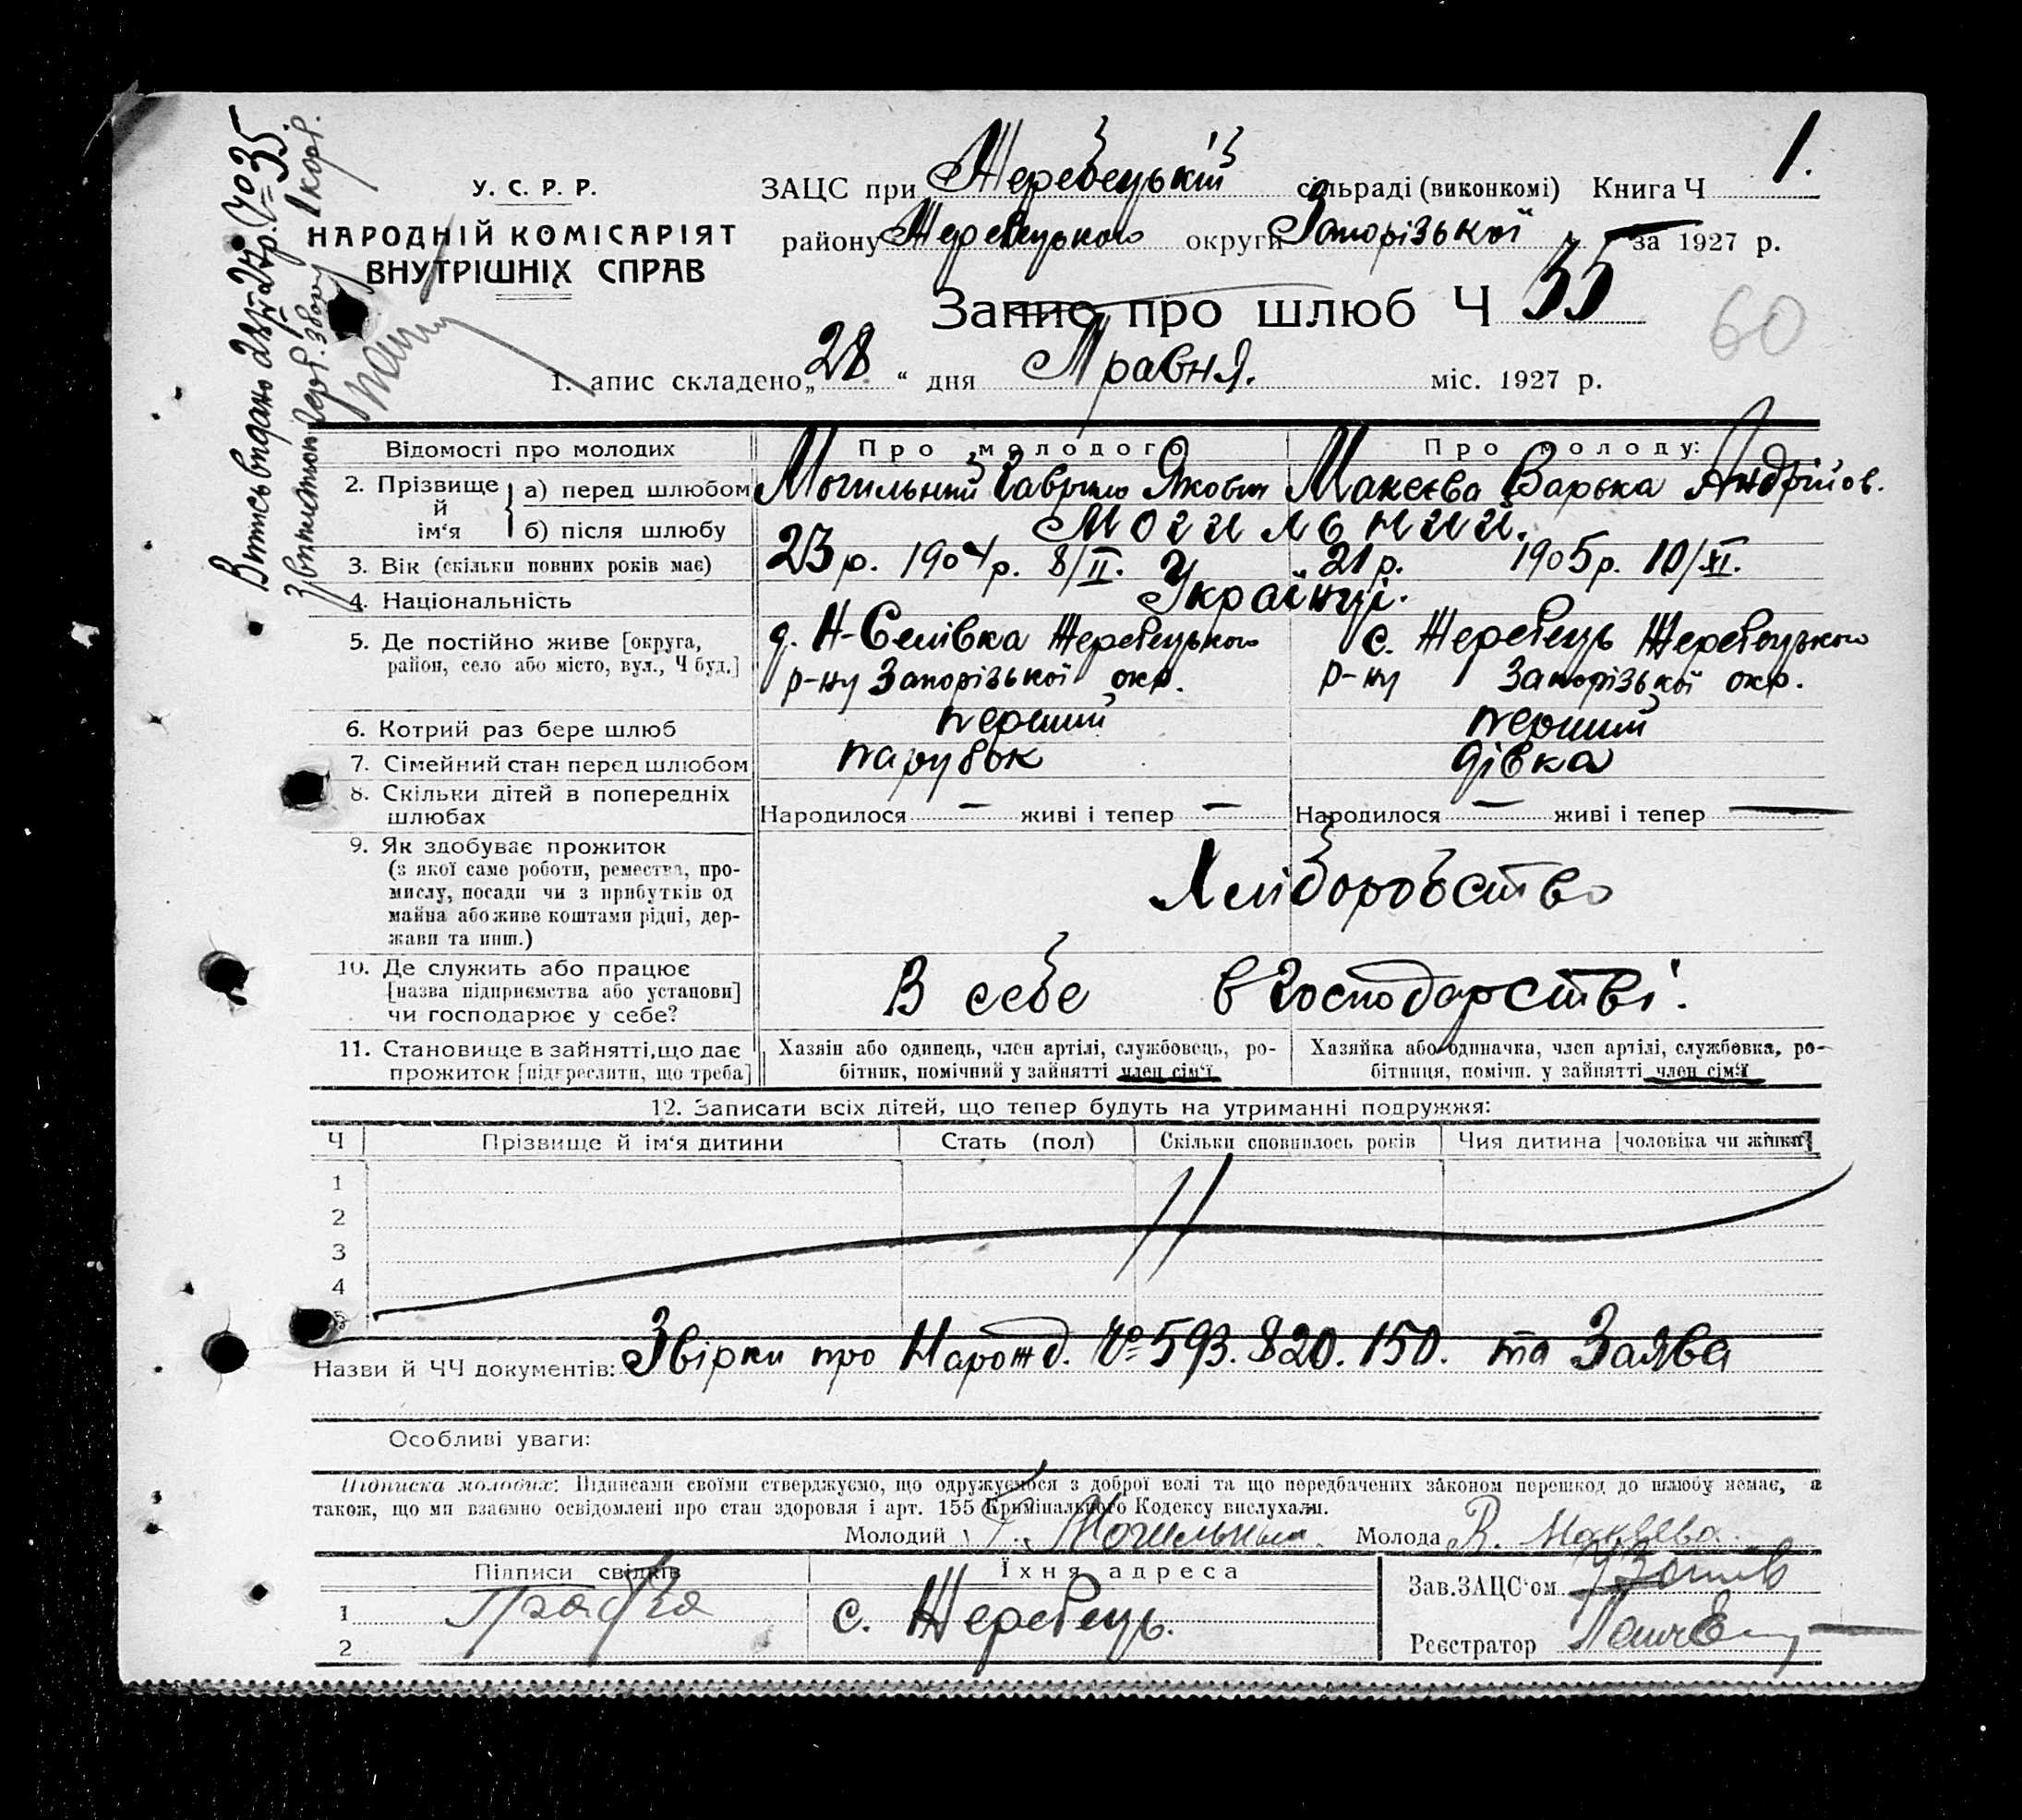 Витяг видано 28/V 27р. № 35
У. С. Р. Р.
НАРОДНІЙ КОМІСАРІЯТ
ВНУТРІШНІХ СПРАВ
ЗАЦС при Жеребецькій сільраді (виконкомі) Книга Ч 1.
району Жеребецького округи Запорізької за 1927 р.
Запис про шлюб Ч 35
60
1. апис складено „28“ дня Травня. міс. 1927 р.
Відомості про молодих
Про молодого
Про молоду:
2. Прізвище й ім‘я
а) перед шлюбом Могильний Гаврило Якович Макєєва Варька Андрійов.
б) після шлюбу Могильний.
3. Вік (скільки повних років має) 23 р. 1904 р. 8/II. 21 р. 1905 р. 10/XI.
4. Національність Українці.
5. Де постійно живе [округа, д. Н-Селівка Жеребецького с. Жеребець Жеребецького
район, село або місто, вул., Ч буд.] р-ну Запорізької окр. р-ну Запорізької окр.
6. Котрий раз бере шлюб перший перший
7. Сімейний стан перед шлюбом парубок дівка
8. Скільки дітей в попередніх
шлюбах Народилося — живі і тепер — Народилося — живі і тепер —
9. Як здобуває прожиток
(з якої саме роботи, ремества, про-
мислу, посади чи з прибутків од Хліборобство
майна або живе коштами рідні, дер-
жави та инш.)
10. Де служить або працює
[назва підприємства або установи] В себе в господарстві.
чи господарює у себе?
11. Становище в зайнятті, що дає Хазяін або одинець, член артілі, службовець, ро- Хазяйка або одиначка, член артілі, службовка, ро-
прожиток [підкреслити, що треба] бітник, помічний у зайнятті член сім‘ї бітниця, помічн. у зайнятті член сім‘ї
12. Записати всіх дітей, що тепер будуть на утриманні подружжя:
Ч Прізвище й ім‘я дитини Стать (пол) Скільки сповнилось років Чия дитина [чоловіка чи жінки]
1
2
3
4
5
Назви й ЧЧ документів: Звірки про Нарожд. № 593. 820. 150. та Заява
Особливі уваги:
Підписка молодих: Підписами своїми стверджуємо, що одружуємося з доброї волі та що передбачених законом перешкод до шлюбу немає, а
також, що ми взаємно освідомлені про стан здоровля і арт. 155 Кримінального Кодексу вислухали.
Молодий Г. Могильный. Молода В. Макеева.
Підписи свідків Їхня адреса
Зав. ЗАЦС‘ом
1 с. Жеребець.
2
Реєстратор